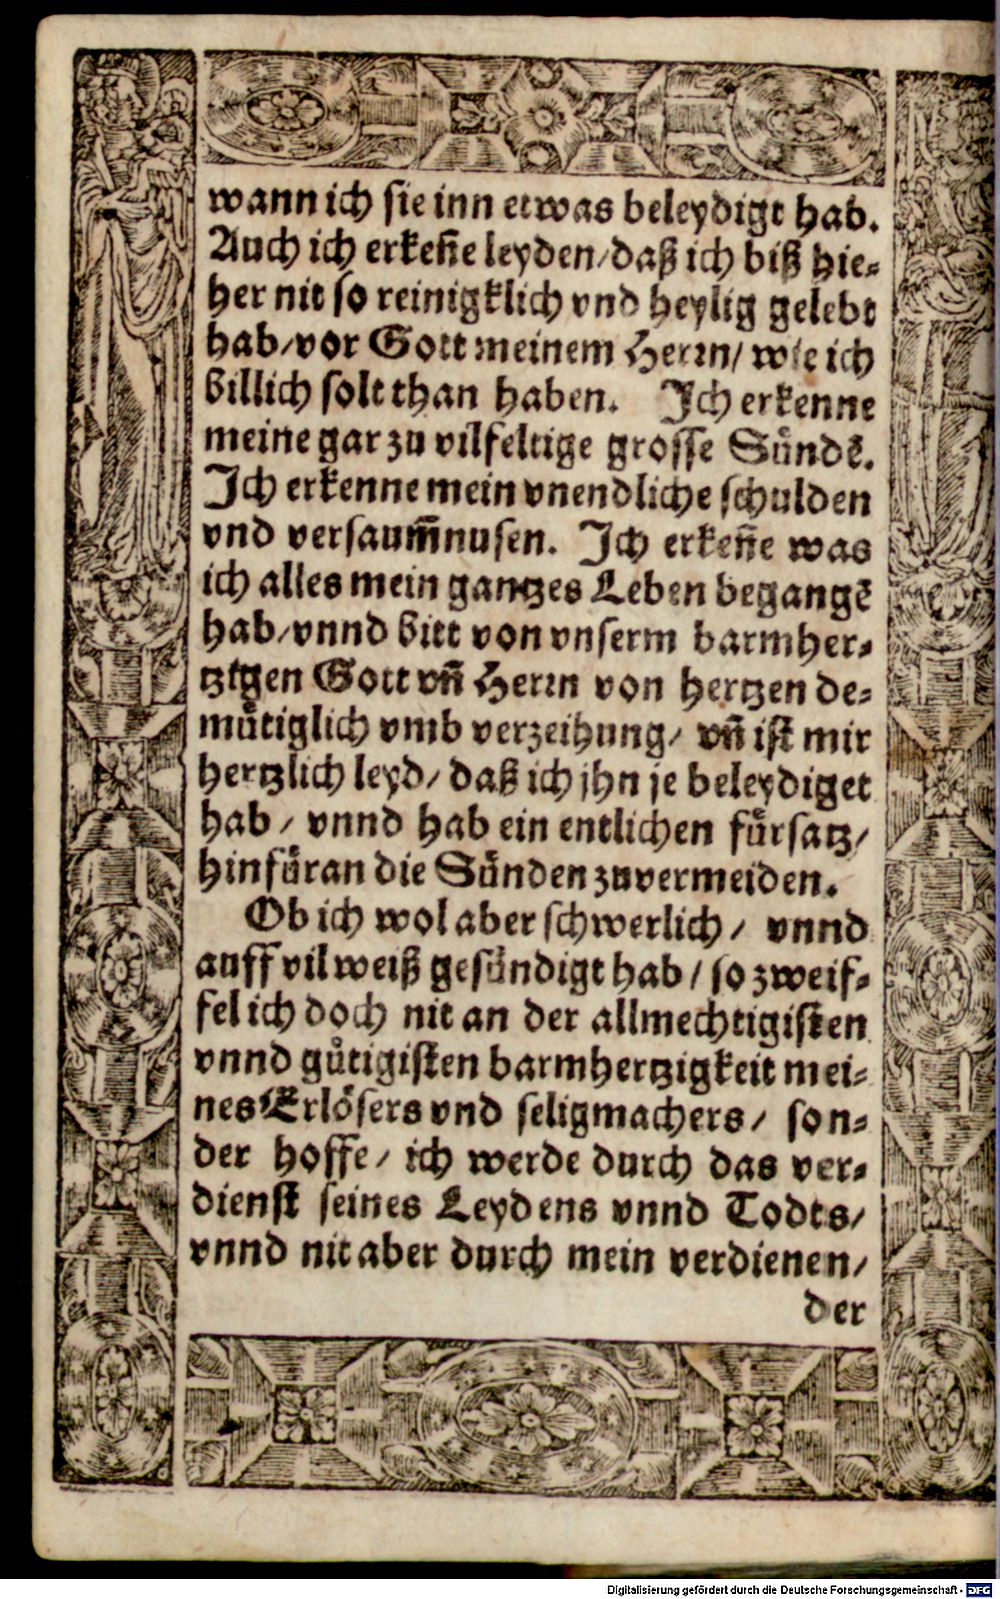 wann ich sie inn etwas beleydigt hab.
Auch ich erkeñe leyden/daß ich biß hie⸗
her nit so reinigklich vnd heylig gelebt
hab/vor Gott meinem Herrn/ wie ich
billich solt than haben. Ich erkenne
meine gar zu vilfeltige grosse Sündẽ.
Ich erkenne mein vnendliche schulden
vnd versaum̃nusen. Ich erkeñe was
ich alles mein gantzes Leben begangẽ
hab/vnnd bitt von vnserm barmher⸗
tzigen Gott vñ Herrn von hertzen de⸗
mütiglich vmb verzeihung/ vñ ist mir
hertzlich leyd/ daß ich jhn je beleydiget
hab / vnnd hab ein entlichen fürsatz/
hinfüran die Sünden zuvermeiden.
Ob ich wol aber schwerlich / vnnd
auff vil weiß gesündigt hab / so zweif⸗
fel ich doch nit an der allmechtigisten
vnnd gütigisten barmhertzigkeit mei⸗
nes Erlösers vnd seligmachers/ son⸗
der hoffe/ ich werde durch das ver⸗
dienst seines Leydens vnnd Todts/
vnnd nit aber durch mein verdienen/
der
Digitalisierung gefördert durch die Deutsche Forschungsgemeinschaft - DFG